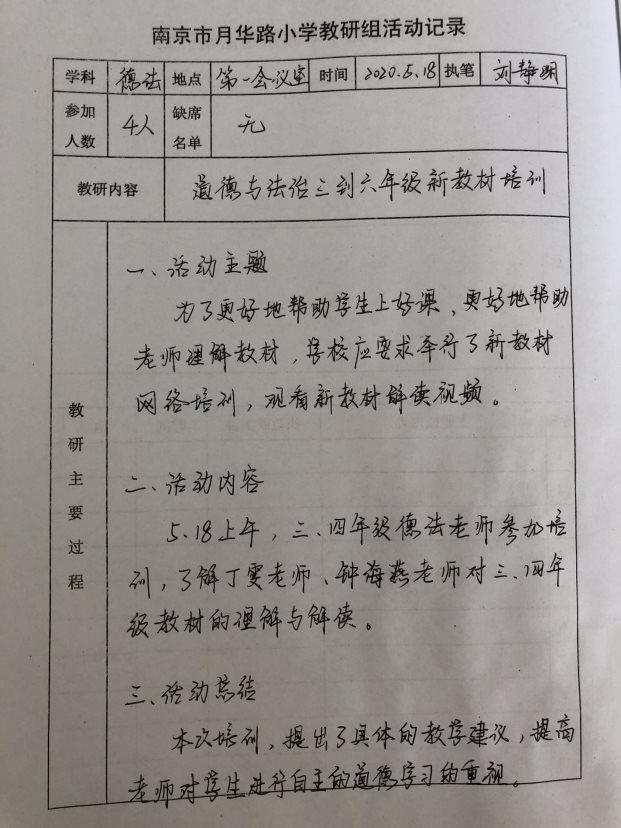 南京市月华路小学教研组活动记录
学科 德法 地点 第一会议室 时间 2020.5.18 执笔 刘静娴
参加人数 4人 缺席名单 无
教研内容 道德与法治三到六年级新教材培训
教研主要过程
一、活动主题
为了更好地帮助学生上好课、更好地帮助
老师理解教材，学校应要求举行了新教材
网络培训，观看新教材解读视频。
二、活动内容
5.18上午，三、四年级德法老师参加培
训，了解丁雯老师、钟海燕老师对三、四年
级教材的理解与解读。
三、活动总结
本次培训，提出了具体的教学建议，提高
老师对学生进行自主的道德学习的重视。